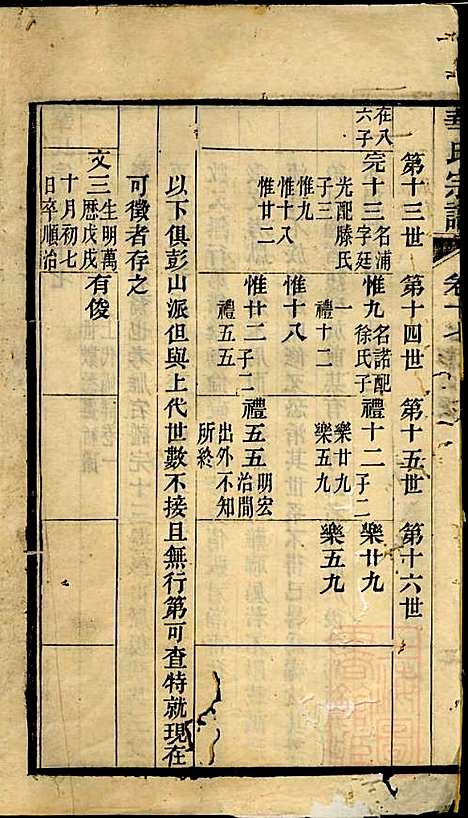 第十三世
第十四世
第十五世
第十六世
在八
六子
完十三
名浦
字廷
光配滕氏
子三
惟九
惟十八
惟廿二
惟九
名諾配
徐氏子
一
禮十二
惟十八
惟廿二
子二
禮五五
禮十二
子二
樂廿九
樂五九
禮五五
明宏
治間
出外不知
所終
樂廿九
樂五九
以下俱彭山派但與上代世數不接且無行第可查特就現在
可徵者存之
文三
生明萬
曆戊戌
十月初七
日卒順治
有俊
華氏宗譜
卷十